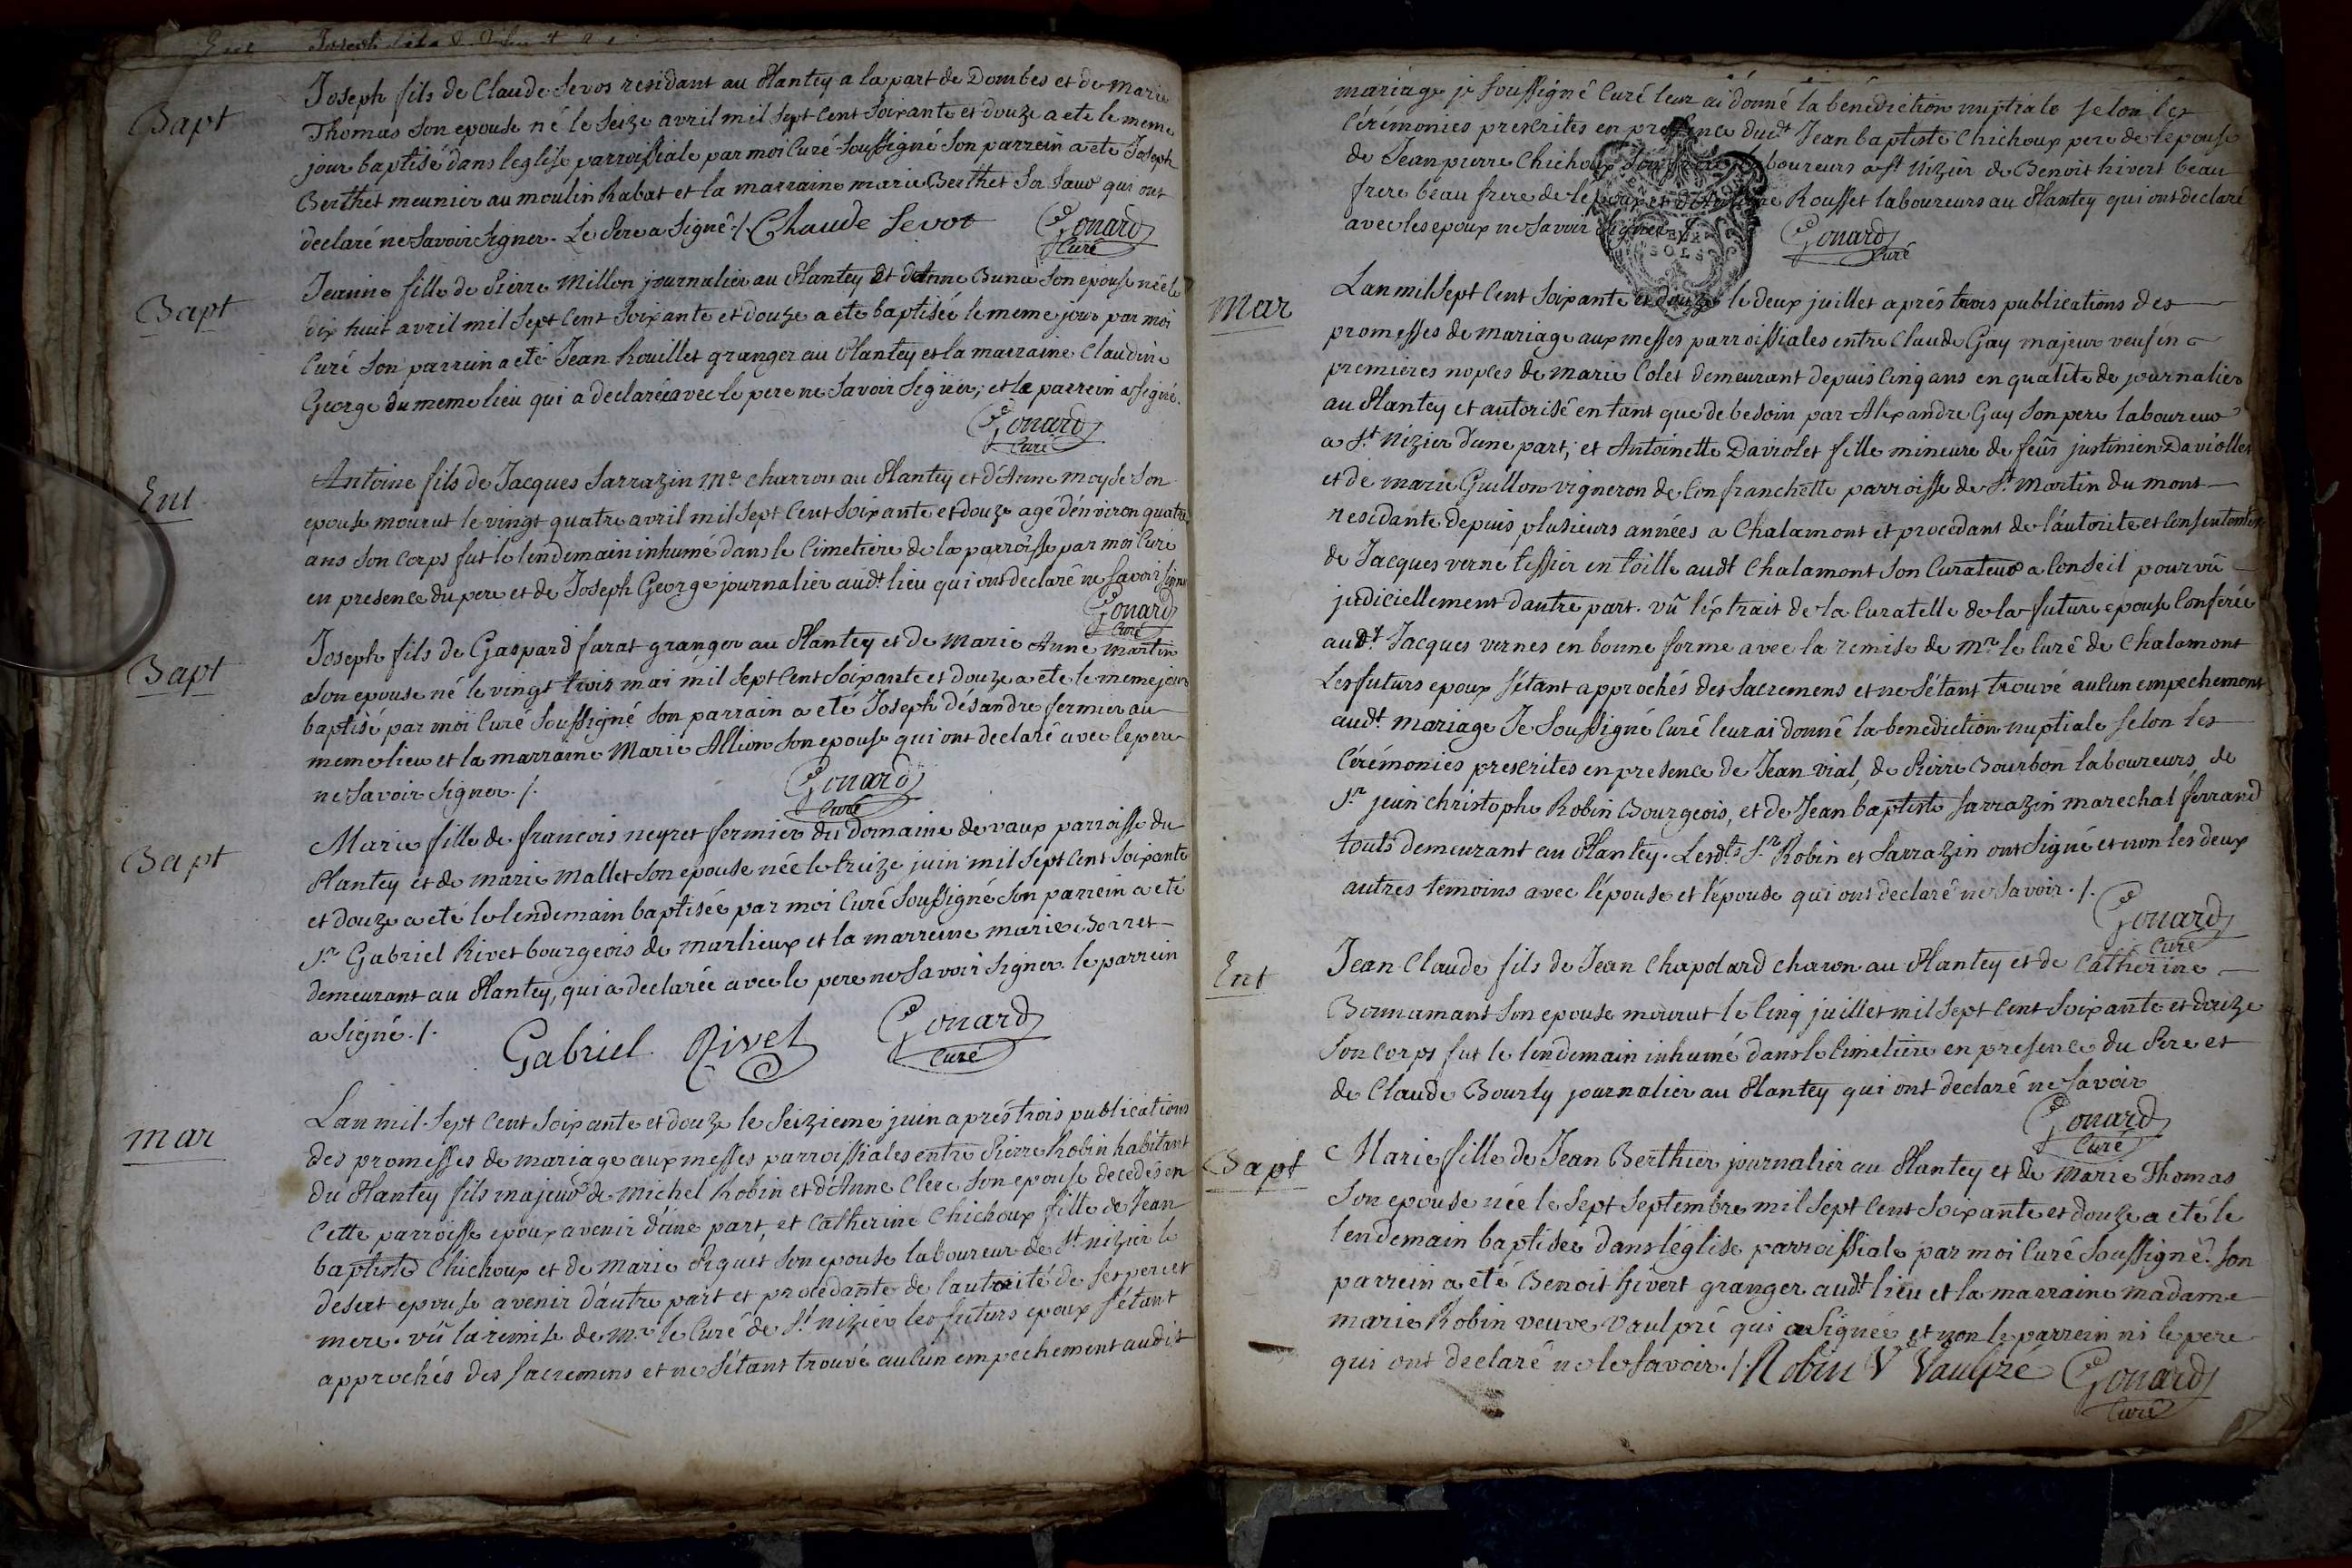 Bapt
Joseph fils de Claude Sevos residant au Plantey a la part de Dombes et de Marie
Thomas son epouse né le seize avril mil sept cent soixante et douze a eté le meme
jour baptisé dans leglise parroissiale par moi curé soussigné son parrein a eté Joseph
Berthet meunier au moulin Rabat et la marraine marie Berthet sa qui ont
declaré ne savoir signer. Le Pere a signé ./. Chaude Sevot Gouard
Curé
Bapt
Jeanne fille de Pierre Millon journalier au Plantey et d'Anne Buna son epouse née le
dix huit avril mil sept cent soixante et douze a eté baptisée le meme jour par moi
Curé son parrein a eté Jean Rouillet granger au Plantey et la marraine Claudine
George du meme lieu qui a declarée avec le pere ne savoir signer, et le parrein a signé.
Gouard
Curé
Ent
Antoine fils de Jacques Sarrazin Me charron au Plantey et d'Anne moyse son
epouse mourut le vingt quatre avril mil sept cent soixante et douze agé d'environ quatre
ans son corps fut le lendemain inhumé dans le cimetiere de la parroisse par moi Curé
en presence du pere et de Joseph George journalier audt lieu qui ont declaré ne savoir signer
Gouard
Curé
Bapt
Joseph fils de Gaspard farat granger au Plantey et de Marie Anne martin
son epouse né le vingt trois mai mil sept cent soixante et douze a eté le meme jour
baptisé par moi Curé soussigné son parrain a eté Joseph désandre fermier au
meme lieu et la marraine Marie Allion son epouse qui ont declaré avec le pere
ne savoir signer ./. Gouard
Curé
Bapt
Marie fille de francois neyret fermier du domaine de vaux parroisse du
Plantey et de marie mallet son epouse née le treize juin mil sept cent soixante
et douze a eté le lendemain baptisée par moi Curé soussigné son parrein a eté
Sr Gabriel Rivet bourgeois de marlieux et la marreine marie Borret
demeurant au Plantey, qui a declarée avec le pere ne savoir signer. le parrein
a signé ./. Gabriel Rivet Gouard
Curé
mar
Lan mil sept cent soixante et douze le seizieme juin aprés trois publications
des promesses de mariage aux messes parroissiales entre Pierre Robin habitant
du Plantey fils majeur de michel Robin et d'Anne Clere son epouse decedés en
cette parroisse epoux avenir d'une part, et Catherine Chichoux fille de Jean
baptiste Chichoux et de marie Piquet son epouse laboureur de St nizier le
desert epouse avenir d'autre part et procédante de l'autorité de ses pere et
mere. vû la remise de Mr le Curé de St nizier les futurs epoux s'étant
approchés des sacremens et ne s'étant trouvé aucun empechement audit
mariage je soussigné Curé leur ai donné la bénédiction nuptiale selon les
Cérémonies prescrites en presence dudt Jean baptiste Chichoux pere de l'epouse
de Jean pierre Chichoux son frere laboureurs a St Nizier de Benoit hivert beau
frere beau frere de l'époux et d'Antoine Rousset laboureurs au Plantey qui ont declaré
avec les epoux ne savoir signer ./. Gouard
Curé
Mar
Lan mil sept cent soixante et douze le deux juillet aprés trois publications des
promesses de mariage aux messes parroissiales entre Claude Gay majeur veuf en
premieres nopces de marie Colet demeurant depuis cinq ans en qualité de journalier
au Plantey et autorisé en tant que de besoin par Alexandre Gay son pere laboureur
a St Nizier d'une part, et Antoinette Daviolet fille mineure de feûs justinien Daviollet
et de marie Guillon vigneron de Confranchette parroisse de St Martin du mont
residante depuis plusieurs années a Chalamont et procedant de l'autorité et consentement
de Jacques verne tissier en toille audt Chalamont son Curateur a conseil pourvû
judiciellement dautre part. vû l'extrait de la Curatelle de la future epouse Conferée
audt Jacques vernes en bonne forme avec la remise de Mr le Curé de Chalamont
Les futurs epoux s'étant approchés des Sacremens et ne s'étant trouvé aucun empechement
audt mariage Je soussigné Curé leur ai donné la benediction nuptiale selon les
Cérémonies prescrites en presence de Jean vial, de Pierre Bourbon laboureurs, de
Sr jean christophe Robin Bourgeois, et de Jean baptiste Sarrazin marechal ferrand
touts demeurant au Plantey. Lesdts Sr Robin et Sarrazin ont signé et non les deux
autres temoins avec l'épouse et l'épouse qui ont declaré ne savoir ./.
Gouard
Curé
Ent
Jean Claude fils de Jean Chapolard charon au Plantey et de Catherine
Bonnamant son epouse mourut le cinq juillet mil sept cent soixante et douze
son corps fut le lendemain inhumé dans le cimetiere en presence du Pere et
de Claude Bourly journalier au Plantey qui ont declaré ne savoir
Gouard
Curé
Bapt
Marie fille de Jean Berthier journalier au Plantey et de Marie Thomas
son epouse née le sept septembre mil sept cent soixante et douze a eté le
lendemain baptisée dans l'église parroissiale par moi Curé soussigné. son
parrein a eté Benoit hivert granger audt lieu et la marraine madame
marie Robin veuve Vaulpré qui a signée et non le parrein ni le pere
qui ont declaré ne le savoir ./. Robin Ve Vaulpré Gouard
Curé